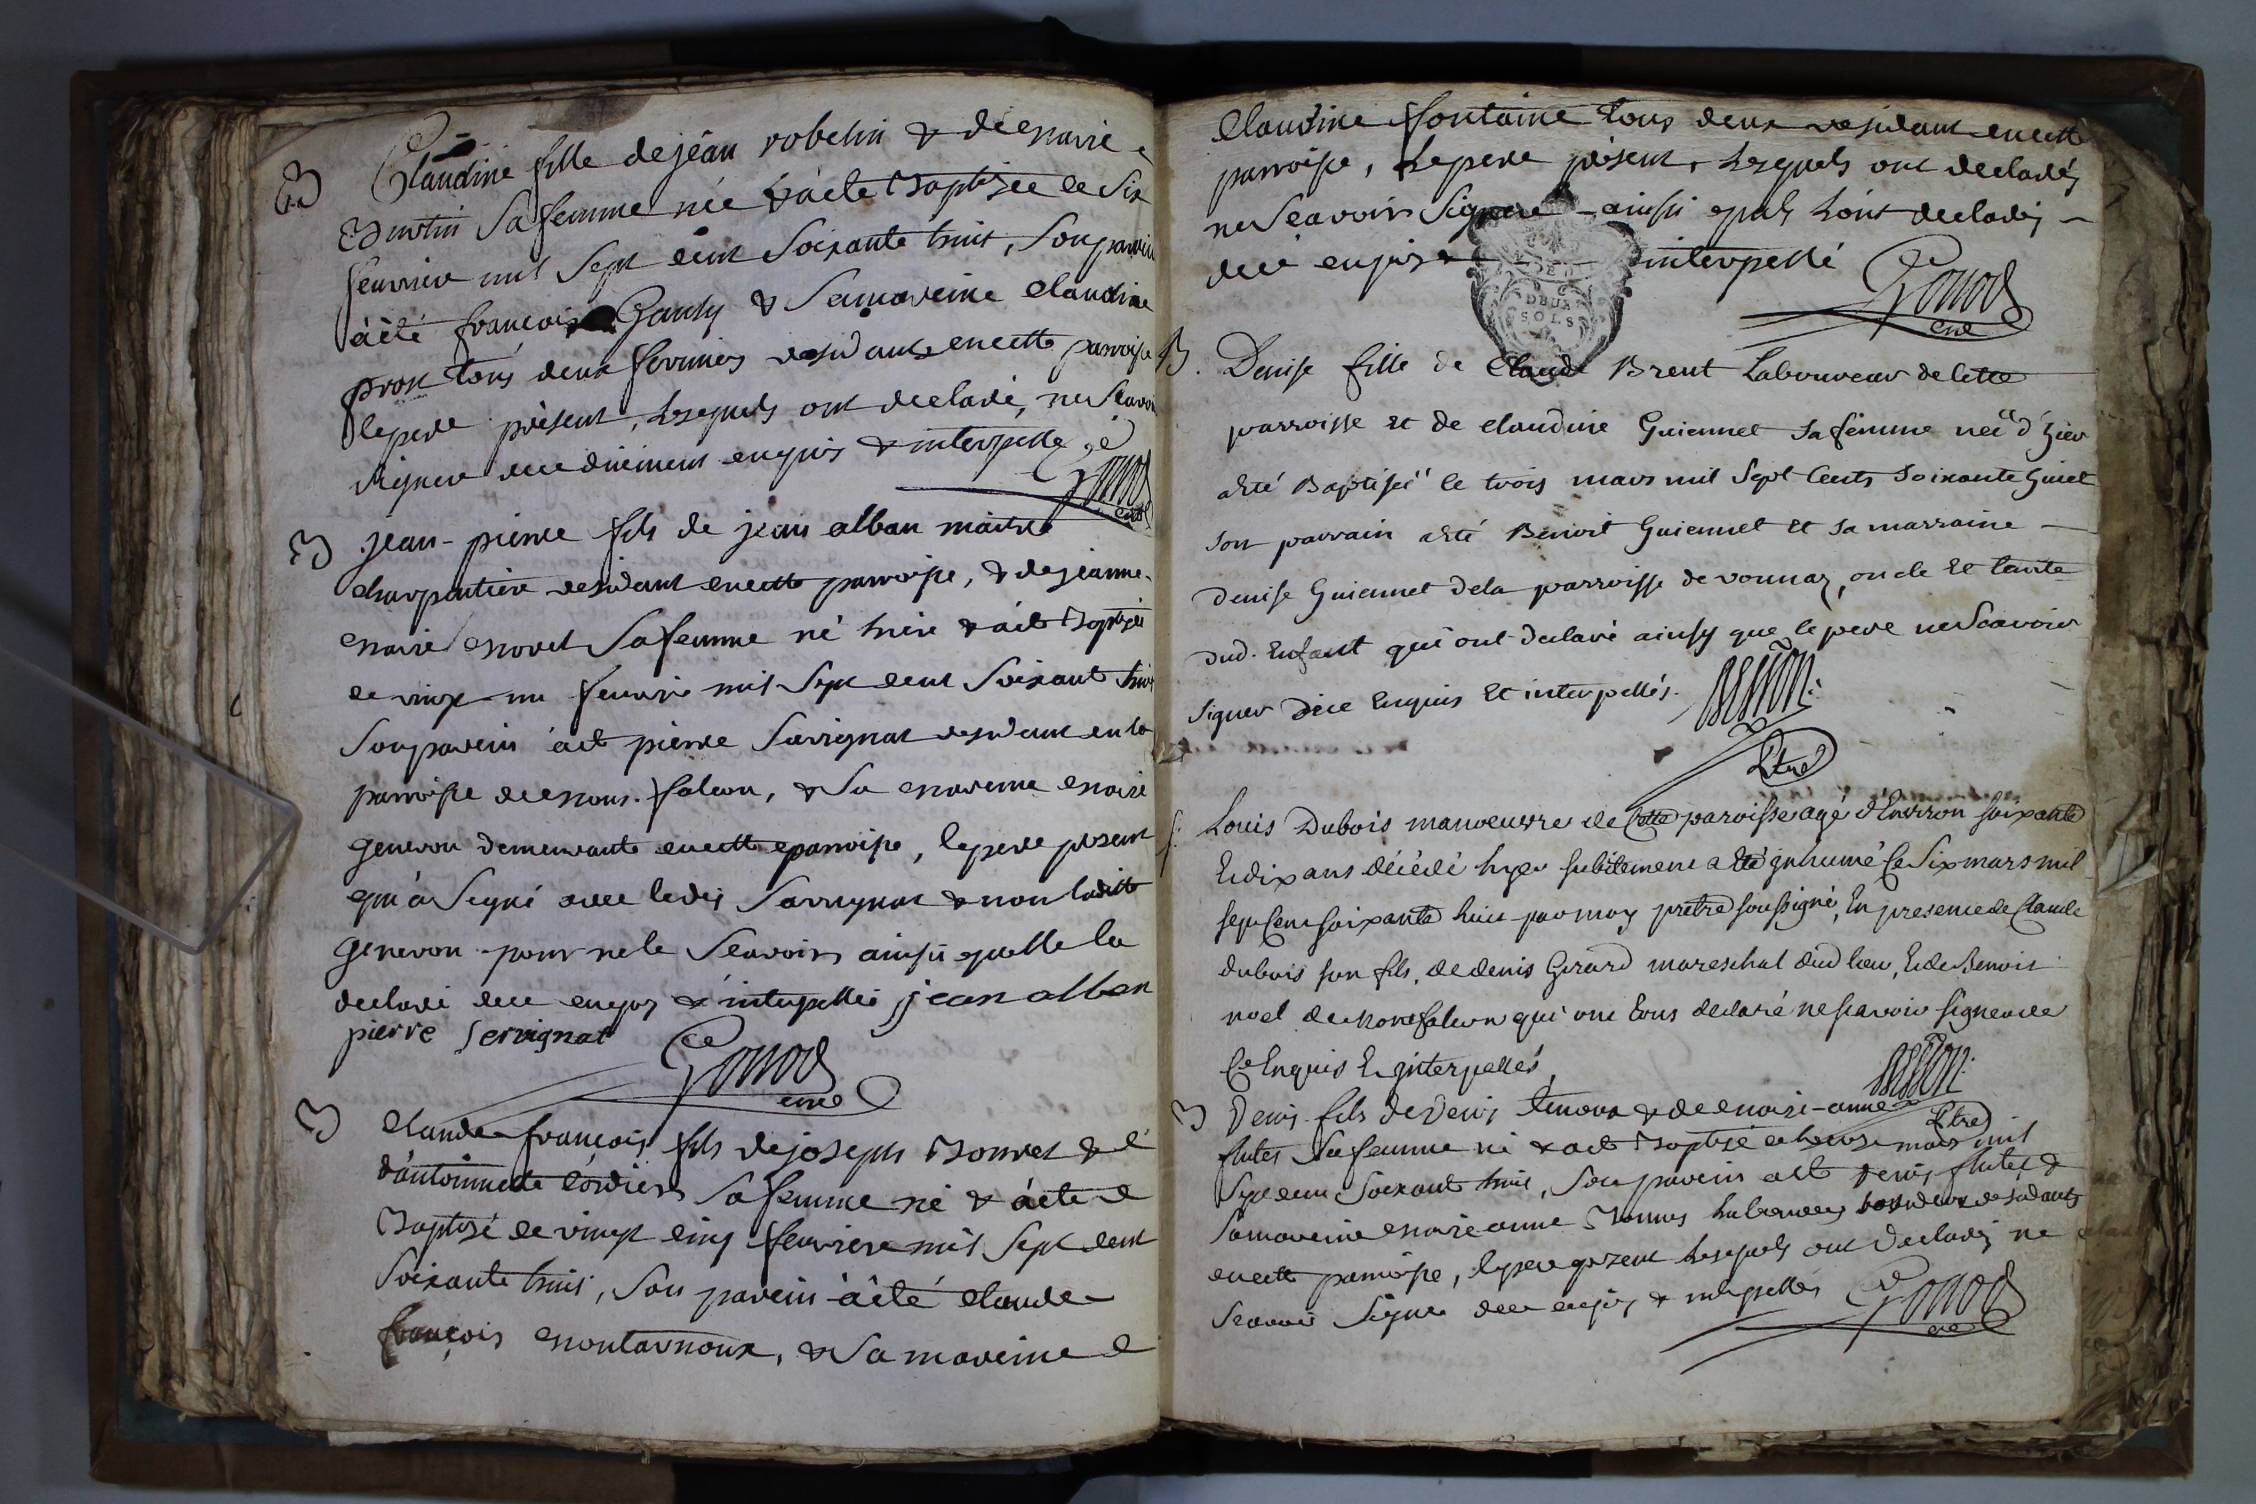 B
Claudine fille de jean robelin & de marie
sa femme née & a ete Baptisée le six
feuvrier mil sept cent soixante huit, son parain
à èté françois Gauly & sa mareine claudine
prost tous deux fermiers residants en cette paroisse
le pere présent, lesquels ont declaré, ne scavoir
signer de ce duement enquis & interpellé
Gonod
curé
B
jean-pierre fils de jean alban maitre
charpentier residant en cette paroisse, & de jeanne
marie morel sa femme né hier & a été Baptisé
le vingt un feuvrie mil sept cent soixant huit
son parein a èté pierre servignat residant en la
paroisse de mont-falcon, & sa mareine marie
genevon demeurante en cette paroisse, le pere present
qui a signé avec ledit servignat & non laditte
genevon pour ne le scavoir ainsi quelle la
declaré de ce enquis & interpellés jean alban
pierre servignat
Gonod
curé
B
claude françois fils de joseph Bonnet &
d'antoinette cordier sa femme né & à eté
Baptisé le vingt cinq feuvriere mil sept cent
soixante huit, son parein à èté claude
françois montarnoux, & sa mareine
claudine fontaine tous deux residant en cette
parroisse, le pere présent, lesquels ont declarés
ne scavoir signere ainsi quils l'ont declarés
de ce enquis & interpellé
DEUX
SOLS
Gonod
curé
B.
Denise fille de Claude Brent Laboureur de cette
parroisse et de claudine Guiennet sa femme neé d'hier
a eté Baptiseé le trois mars mil sept cents soixante huict
son parrain a eté Benoit Guiennet et sa marraine
denise Guiennet de la parroisse de vonnaz, oncle et tante
dud. enfant qui ont declaré ainsy que le pere ne scavoir
signer de ce enquis et interpellés.
Ptre
S.
Louis Dubois manoeuvre de cette paroisse agé d'Environ soixante
Et dix ans décédé hyer subitement a eté inhumé ce six mars mil
sept cent soixante huit par moy prètre soussigné, En presence de Claude
dubois son fils, de denis Gerard mareschal dud lieu, Et de Benoit
noel de montfalcon qui ont tous declaré ne scavoir signer de
ce Enquis Et interpellés
Ptre
B
Denis fils de Denis & de marie-anne
flutet sa femme né & a eté Baptisé le mars mil
sept cent soixant huit, son parein a eté Denis flutet &
sa mareine marie anne laboureurs tous deux residants
en cette paroisse, le pere present lesquels ont declarés ne
scavoir signer de ce enquis & interpellés
Gonod
curé